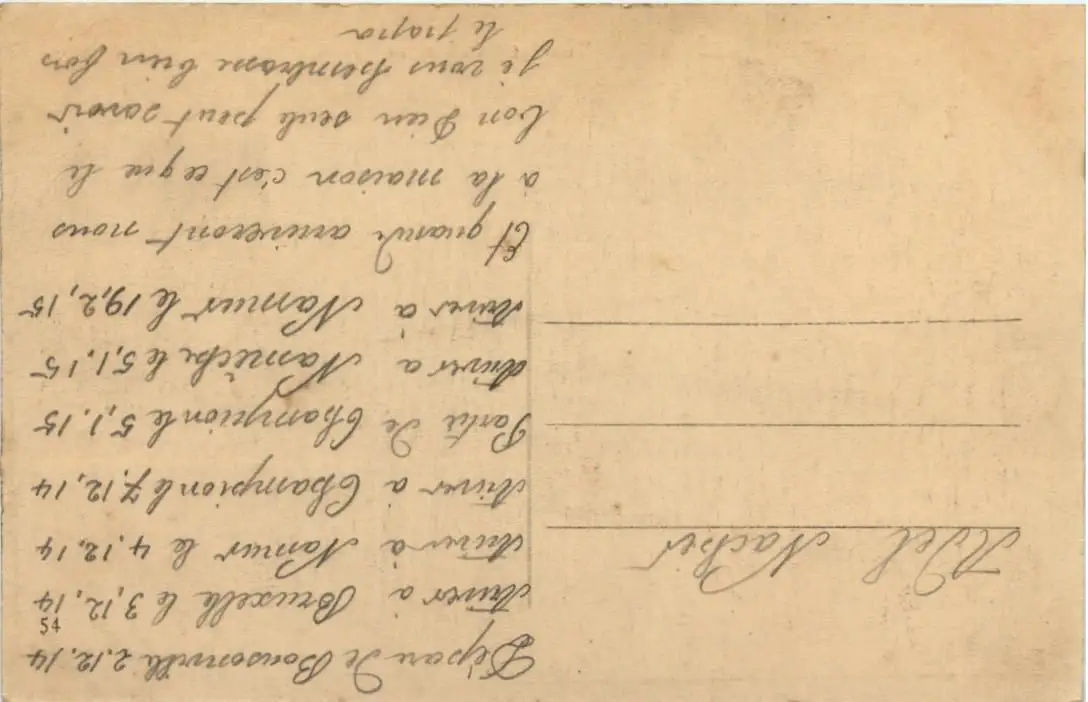 Dépar de Bousonville 2.12.14
Ariver à Bruxelle le 3,12,14
Ariver à Namur le 4,12,14
Ariver à Champion le 7,12,14
Parti de Champion le 5,1,15
Ariver à Namèche le 5,1,15
Ariver à Namur le 19,2,15
Et quand ariveront nous
à la maison c'est ce que le
bon Dieu seule peut savoir
Je vous hembrasse bien fors
le papa
54
Adel Nacher